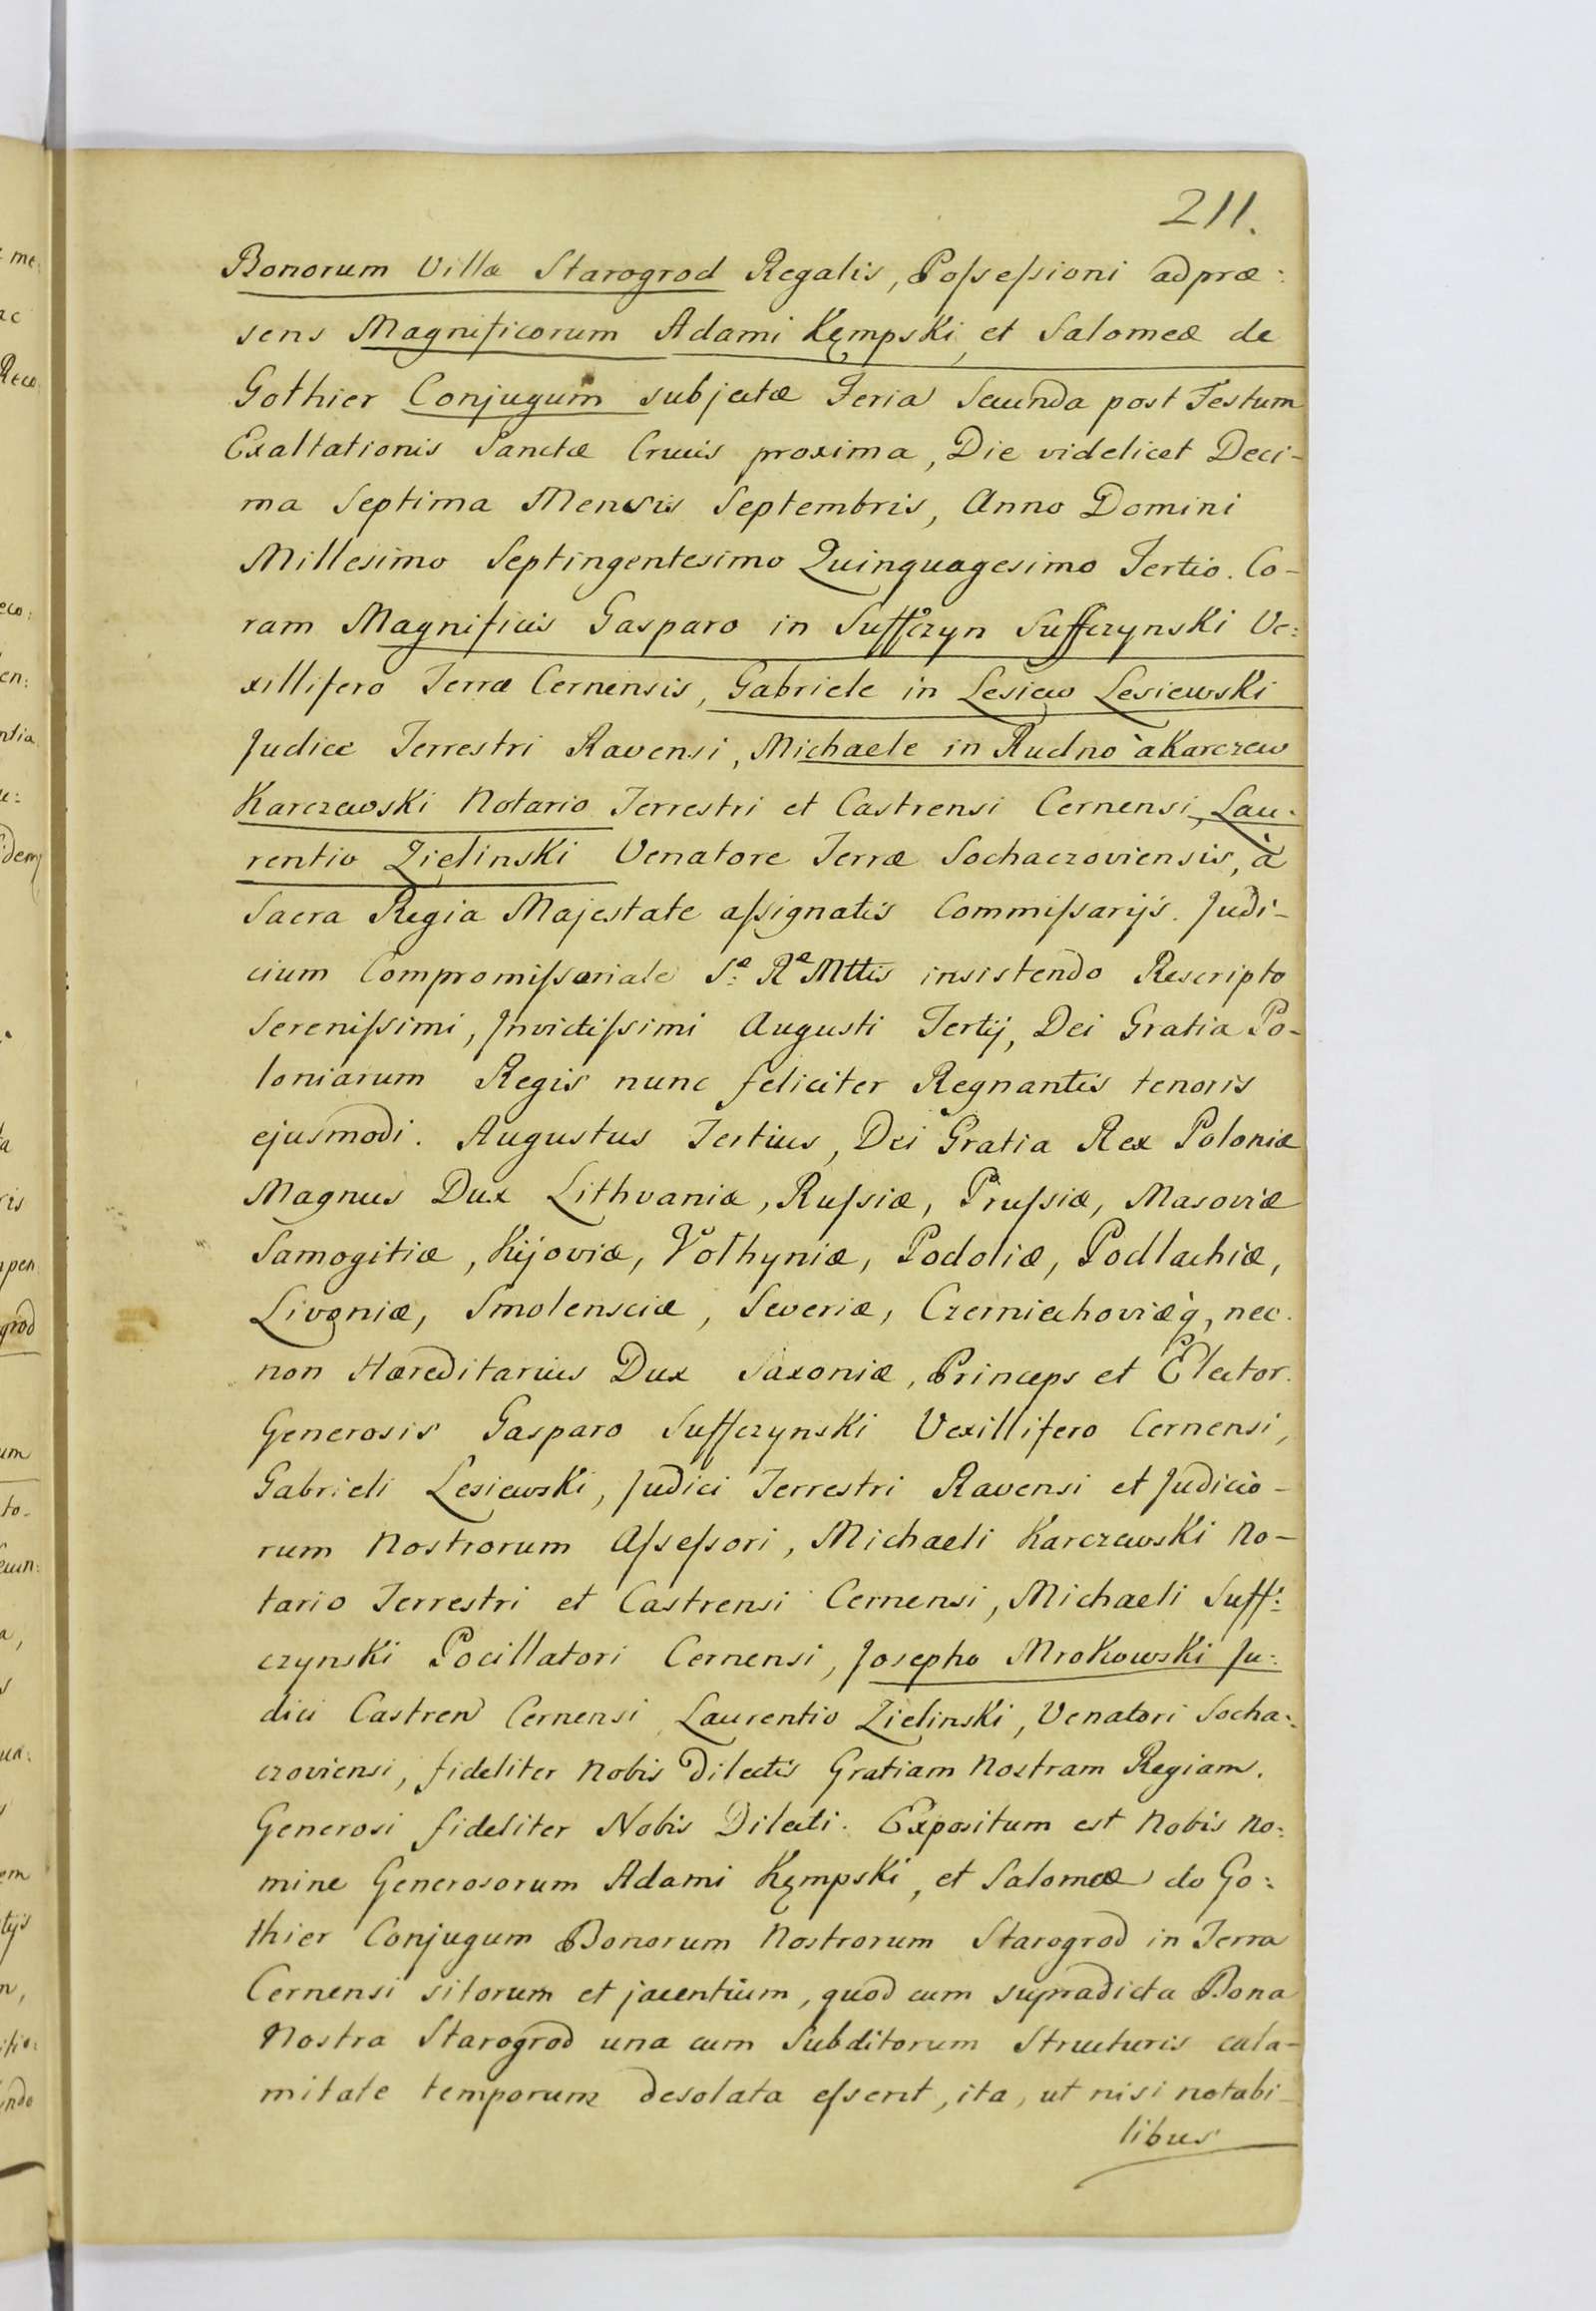 211.
Bonorum Villæ Starogrod Regalis, Poſseſsioni adpræ:
sens Magnificorum Adami Kępski, et Salomeæ de
Gothier Conjugum subjectæ Feria Secunda post Festum
Exaltationis Sanctæ Crucis proxima, Die videlicet Deci-
ma Septima Mensis Septembris, Anno Domini
Millesimo Septingentesimo Quinquagesimo Tertio. Co-
ram Magnificis Gasparo in Suffczyn Suffczynski Ve:
xillifero Terræ Cernensis, Gabriele in Lesiew Lesiewski
Judice Terrestri Ravensi, Michaele in Rudno à Karczew
Karczewski Notario Terrestri et Castrensi Cernensi, Lau:
rentio Zielinski Venatore Terræ Sochaczoviensis, à
Sacra Regia Majestate aſsignatis Commiſsarijs. Judi-
cium Compromiſsoriale S.æ Ræ Mttis insistendo Rescripto
Sereniſsimi, Invictiſsimi Augusti Tertij, Dei Gratia Po-
loniarum Regis nunc feliciter Regnantis tenoris
ejusmodi. Augustus Tertius, Dei Gratia Rex Poloniæ
Magnus Dux Lithvaniæ, Ruſsiæ, Pruſsiæ, Masoviæ
Samogitiæ, Kijoviæ, Volhyniæ, Podoliæ, Podlachiæ,
Livoniæ, Smolensciæ, Severiæ, Czerniechoviæq, nec.
non Hæreditarius Dux Saxoniæ, Princeps et Elector.
Generosis Gasparo Suffczynski Vexillifero Cernensi,
Gabrieli Lesiewski, Judici Terrestri Ravensi et Judicio-
rum Nostrorum Aſseſsori, Michaeli Karczewski No-
tario Terrestri et Castrensi Cernensi, Michaeli Suff:
czynski Pocillatori Cernensi, Josepho Mrokowski Ju:
dici Castren Cernensi Laurentio Zielinski, Venatori Socha:
czoviensi, fideliter Nobis Dilectis Gratiam Nostram Regiam.
Generosi fideliter Nobis Dilecti. Expositum est Nobis no:
mine Generosorum Adami Kęmpski, et Salomeæ de Go:
thier Conjugum Bonorum Nostrorum Starogrod in Terra
Cernensi sitorum et jacentium, quod cum supradicta Bona
Nostra Starogrod una cum Subditorum Structuris cala-
mitate temporum desolata eſsent, ita, ut nisi notabi-
libus